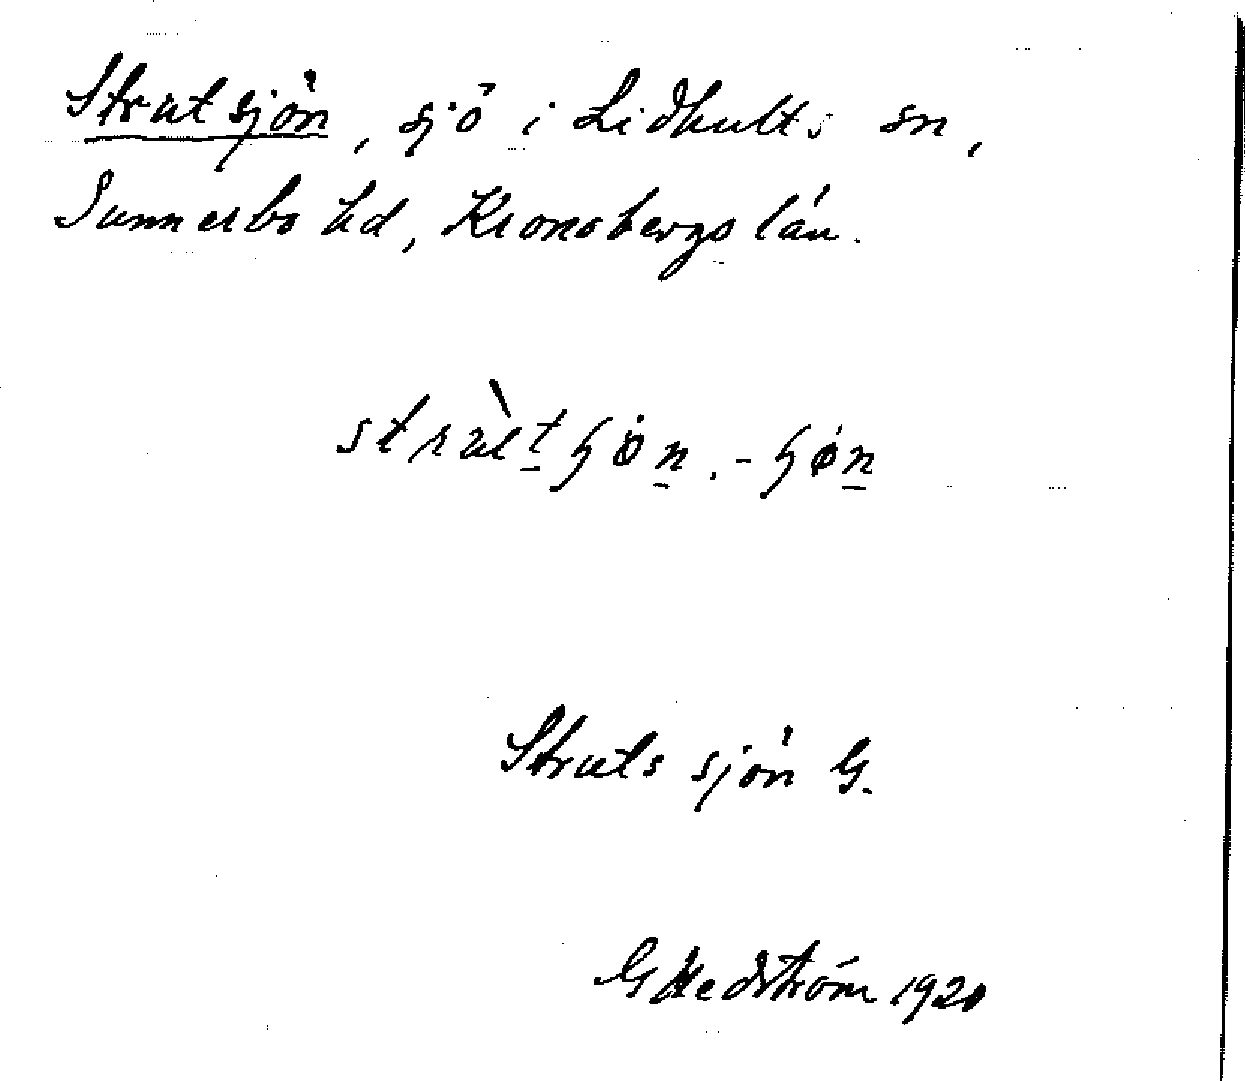 Strutsjön, sjö i Lidhults sn,
Sunnerbo hd, Kronobergs län.
Struts sjön G.
G Hedström 1920